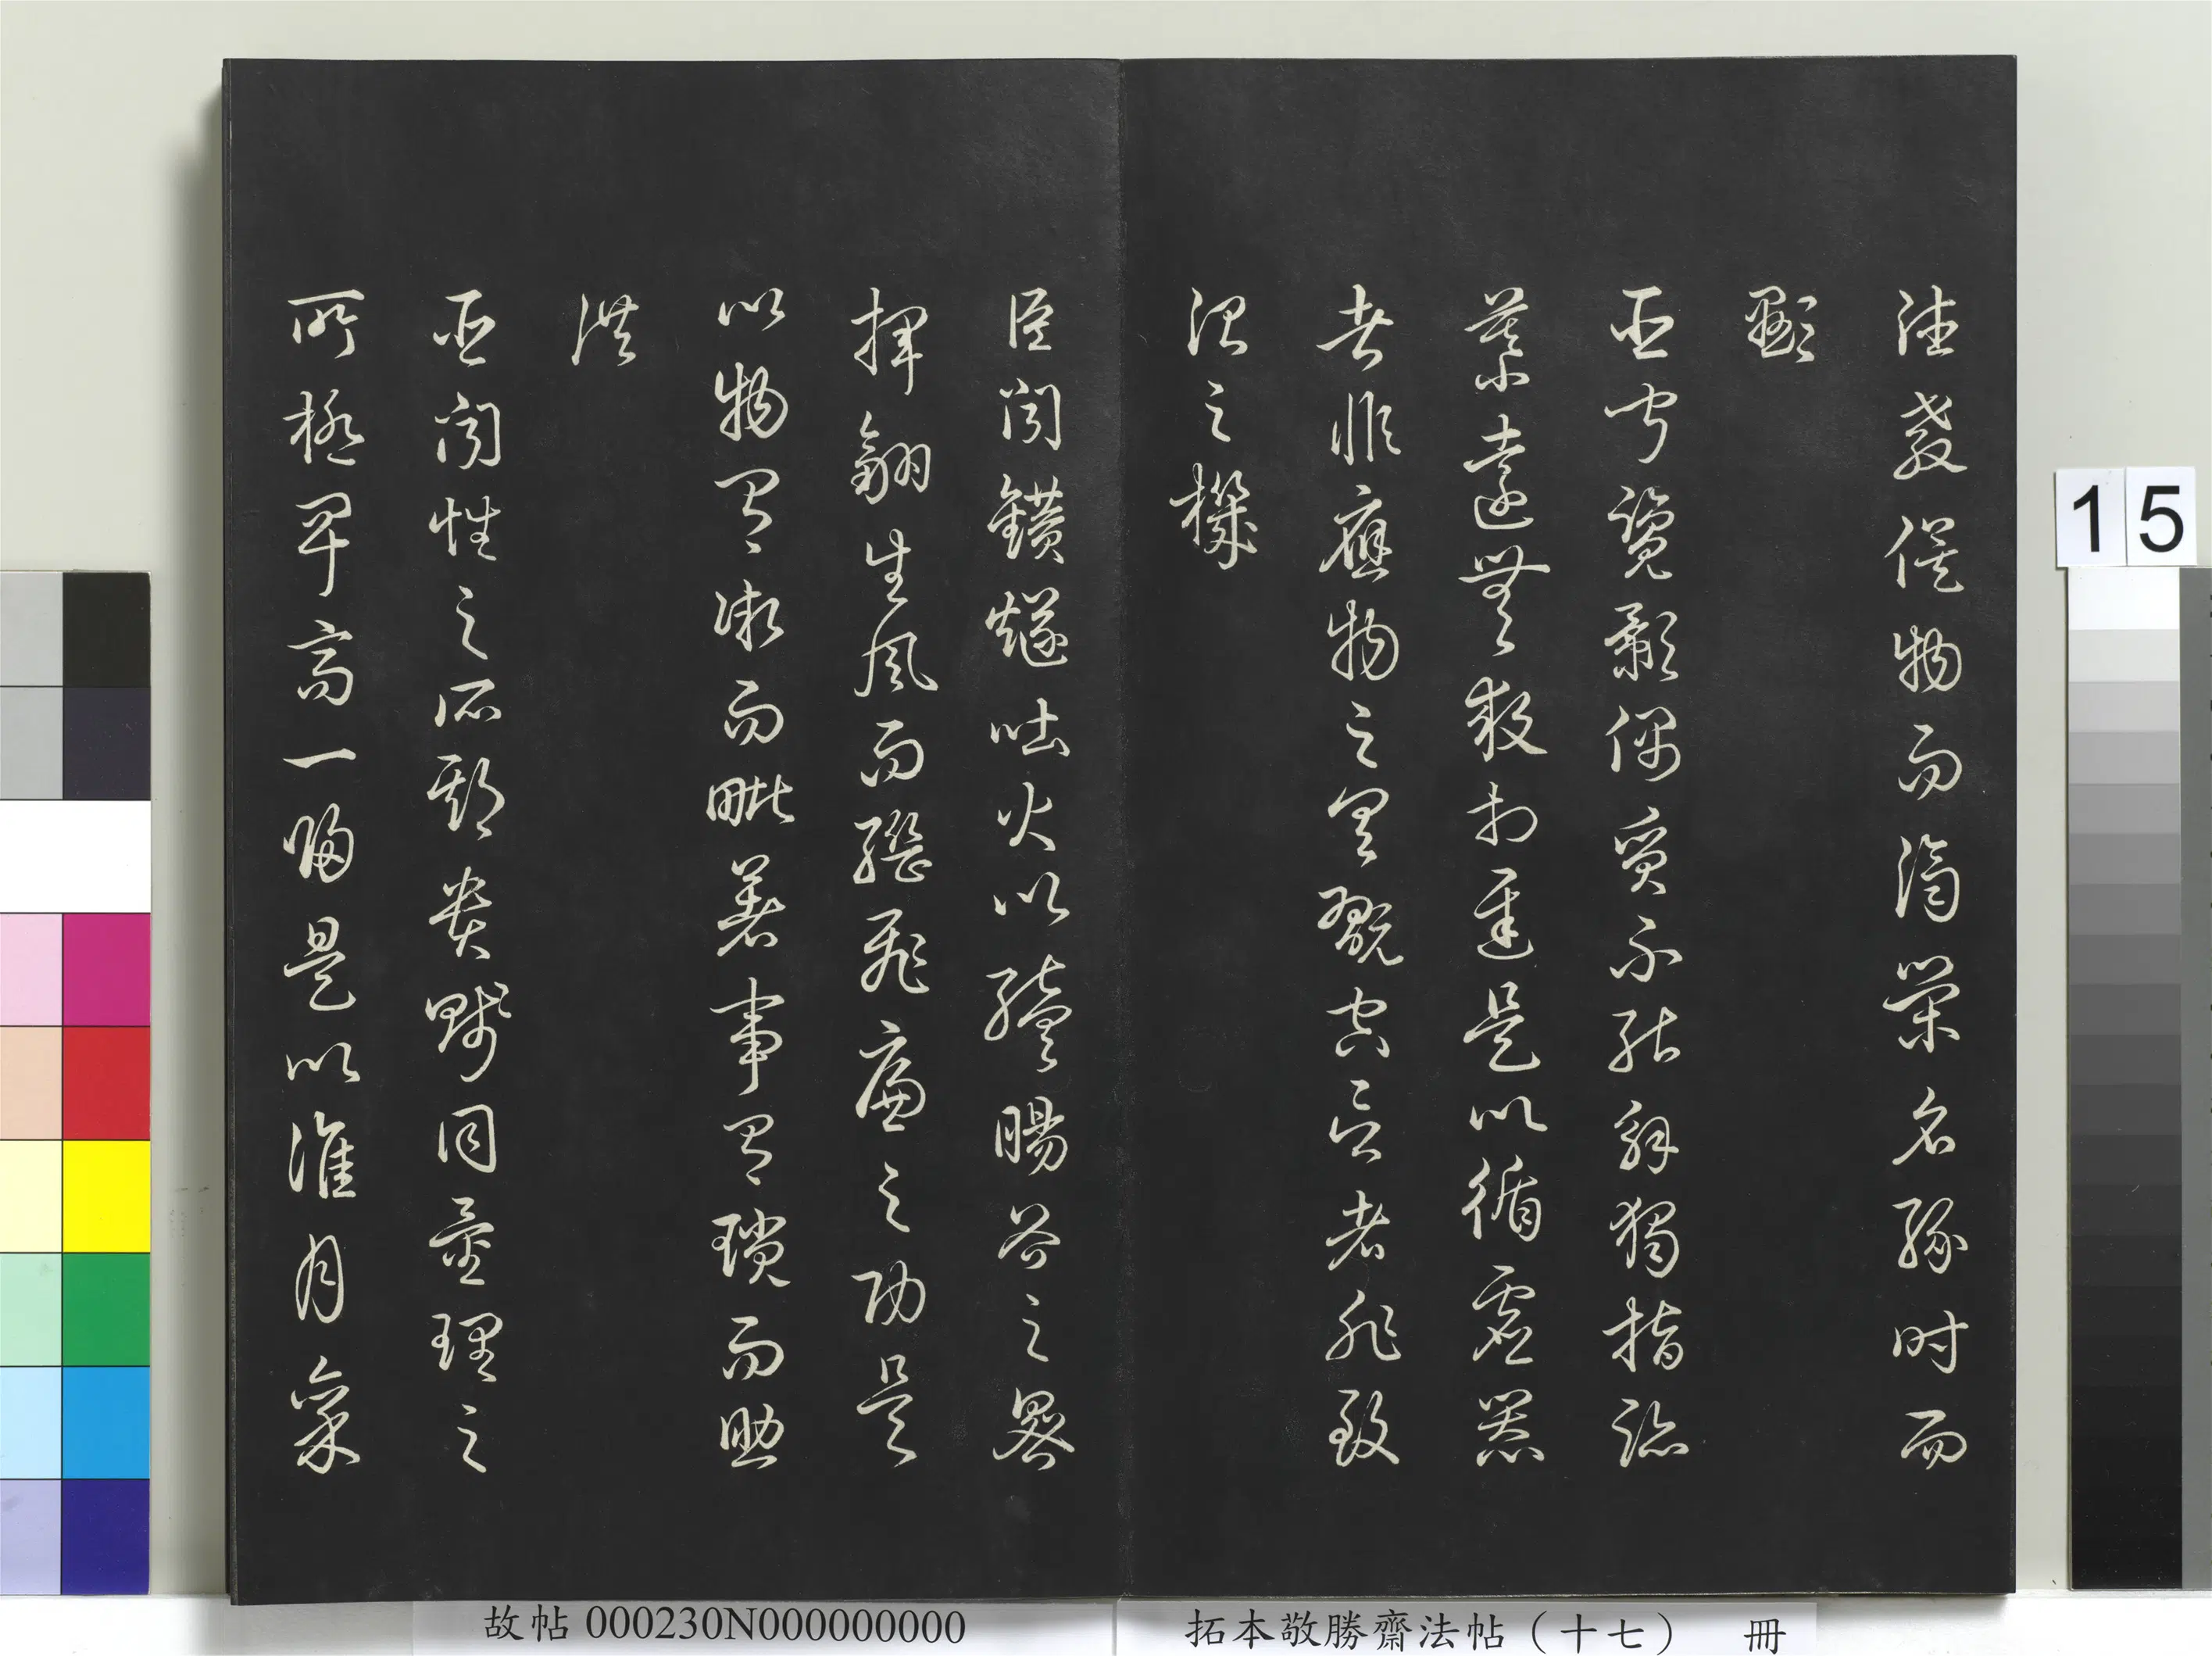 德教俟物而濟榮名緣時而
顯
臣聞覽影偶質不能解獨指迹
慕遠無救於遲是以循虛器
者非應物之具翫空言者非致
治之機
臣聞鑽燧吐火以續暘谷之晷
揮翮生風而繼飛廉之功是
以物有微而毗著事有瑣而助
洪
臣聞性之所期貴賤同量理之
所極卑高一歸是以准月稟
15
拓本敬勝齋法帖（十七） 冊
故帖 000230N000000000